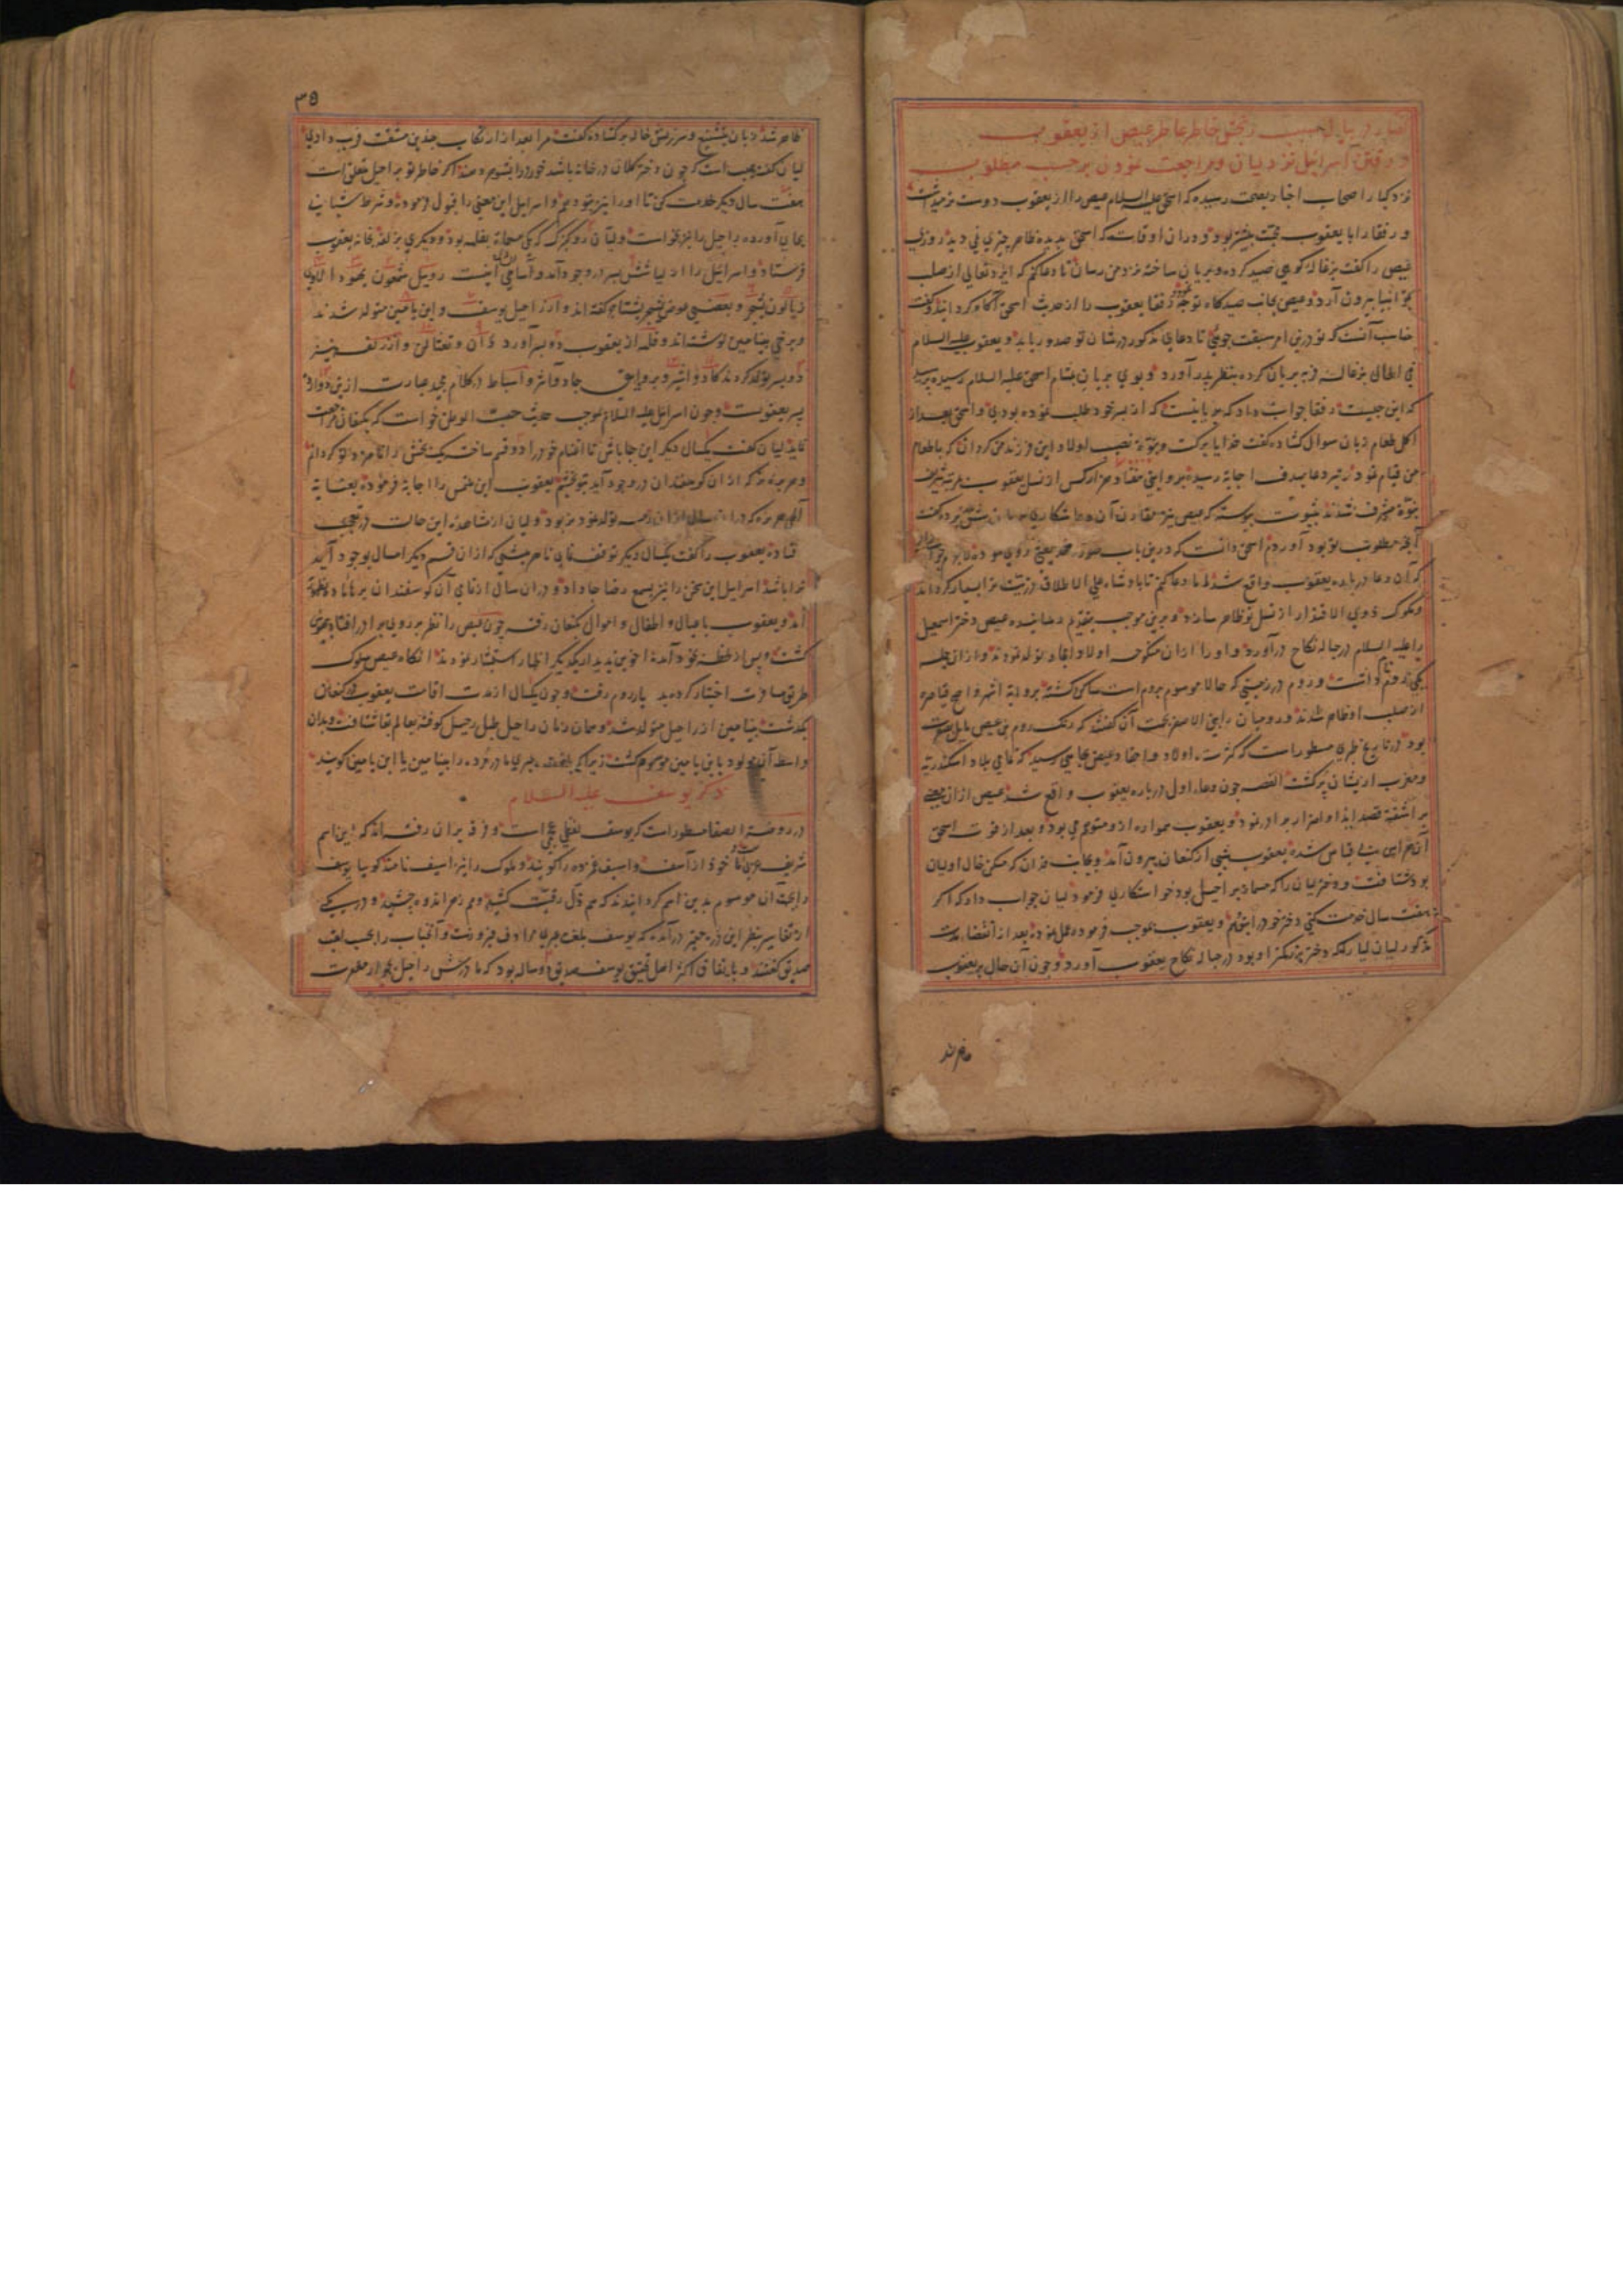 گفتار در بیان سبب رنجش خاطر عاطر عیص از یعقوب
و رفتن اسرائیل نزد لیان و مراجعت نمودن بر حسب مطلوب
نزد کبار اصحاب اخبار بصحت رسیده که اسحق علیه السلام عیص را از یعقوب دوست تر میداشت
و رفقا را با یعقوب محبت بیشتر بود و در ان اوقات که اسحق بدیده ظاهر چیزی نمی دید روزی
عیص را گفت بزغاله کوهی صید کرده و بریان ساخته نزد من رسان تا دعا کنم که ایزد تعالی از صلب
تو انبیا بیرون آرد و عیص بجانب صیدگاه توجه نموده رفقا یعقوب را از حدیث اسحق آگاه گردانید و گفت
مناسب آنست که تو درین امر سبقت جوئی تا دعای مذکور در شان تو صدور یابد و یعقوب علیه السلام
فی الحال بزغاله فربه بریان کرده بنظر پدر آورد و بوی بریان بمشام اسحق علیه السلام رسیده پرسید
که این چیست رفقا جواب داد که بریانیست که از پسر خود طلب نموده بودی و اسحق بعد از
اکل طعام زبان سوال گشاده گفت خدایا برکت و نبوت نصیب اولاد این فرزند من گردان که باطعام
من قیام نمود تیر دعا بهدف اجابت رسیده بروایتی هفتاد هزار کس از نسل یعقوب بمرتبه شریف
نبوت مشرف شدند بثبوت پیوسته که عیص نیز مقارن آن دعا شکاری بریان پیش پدر برده گفت
آنچه مطلوب تو بود آوردم اسحق دانست که درین باب صورت
که آن دعا در باره یعقوب واقع شد اما دعا کنم تا پادشاه علی الاطلاق ذریت ترا بسیار گرداند
و ملوک ذوی الاقتدار از نسل تو ظاهر سازد و برین موجب بتقدیم رسانیده عیص دختر اسمعیل
را علیه السلام در حباله نکاح درآورد و او را ازان منکوحه اولاد و احفاد تولد نمودند و از ان جمله
یکی روم نام داشت و روم در زمینی که حالا موسوم بروم است ساکن گشته بروایه اشهر و اصح قیاصره
از صلب او ظاهر شدند و رومیان را بنی الاصفر بجهت آن گفتند که رنگ روم بن عیص مایل بصفرت
بود در تاریخ طبری مسطور است که کثرت اولاد و احفاد عیص بجایی رسید که تمامی بلاد اسکندریه
و مغرب از یشان پر گشت القصه چون دعاء اول در باره یعقوب واقع شد عیص از ان معنی
بر آشفته قصد ایذا و اضرار برادر نمود و یعقوب همواره ازو متوهم می بود و بعد از فوت اسحق
آن هراس بی قیاس شده یعقوب شبی از کنعان بیرون آمد و بجانب فدان که مسکن خال او لیان
بود شتافت و دختر لیان را که مسماة براحیل بود خواستگاری فرمود لیان جواب داد که اگر
هفت سال خدمت کنی دختر خود را بتو دهم و یعقوب بموجب فرموده عمل نموده بعد از انقضاء مدت
مذکور لیان لیا را که دختر بزرگتر او بود در حباله نکاح یعقوب آورد و چون آن حال بر یعقوب
ظاهر شد
۳۵
ظاهر شد زبان بتشنیع و سرزنش خاله برگشاده گفت مرا بعد از ارتکاب چندین مشقت فریب دادی
لیان گفت عیب است که چون دختر کلان در خانه باشد خورد را بشوهر دهند اگر خاطر تو براحیل متعلق است
هفت سال دیگر خدمت کن تا او را نیز بتو دهم و اسرائیل این معنی را قبول فرموده و شرط شبانی
بجای آورده راحیل را نیز بخواست و لیان دو کنیزک که یکی مسماة بقله بود و دیگری بزلفه بخانه یعقوب
فرستاد و اسرائیل را از لیا شش پسر در وجود آمد و اسامی ایشان اینست روبیل شمعون یهودا لاوی
زبالون یشجر و بعضی عوض یشجر یشتاخر گفته اند و از راحیل یوسف و ابن یامین متولد شدند
و برخی بنیامین نوشته اند و قله از یعقوب دو پسر آورد دان و نفتالی و از زلفه نیز
دو پسر تولد کردند کاد و اشیر و بروایتی جاد و آشر و اسباط در کلام مجید عبارت ازین دوازده
پسر یعقوبست و چون اسرائیل علیه السلام بموجب حدیث حب الوطن خواست که بکنعان مراجعت
نماید لیان گفت یکسال دیگر این جا باش تا اغنام خود را دو قسم ساخته یک بخش را نامزد تو گردانم
و هر بره نر که از ان گوسفندان در وجود آید بتو بخشم یعقوب این ملتمس را اجابه فرموده بعنایة
الهی هر بره که در ان سال ازان رمه تولد نمود نر بود و لیان از مشاهده این حالت در تعجب
افتاده یعقوب را گفت یکسال دیگر توقف نمای تا هر میشی که ازان قسم دیگر امسال بوجود آید
ترا باشد اسرائیل این سخن را نیز بسمع رضا جا داد و در ان سال از تمامی آن گوسفندان
آمد و یعقوب با عیال و اطفال و اموال بکنعان رفت چون عیص را نظر بر روی برادر افتاد بیهوش
گشت و پس از لحظه بخود آمده اخوین بدیدار یکدیگر اظهار استبشار نمودند انگاه عیص سلوک
طریق مسافرت اختیار کرده بدیار روم رفت و چون یکسال از مدت اقامت یعقوب در کنعان
بگذشت بنیامین از راحیل متولد شد و همان زمان راحیل طبل رحیل کوفته بعالم بقا شتافت و بدان
واسطه آن مولود بابن یامین موسوم گشت زیرا که بلغت عبری مادر مرده را بنیامین یا ابن یامین گویند
ذکر یوسف علیه السلام
در روضة الصفا مسطور است که یوسف لفظی عجمی است و فرقه بر ان رفته اند که این اسم
شریف عربی است ماخوذ از آسف و اسیف غمزده را گویند و مملوک را نیز اسیف نامند گوییا یوسف
را بجهت ان موسوم بدین اسم گردانیدند که هم ذل رقیت کشید و هم زهر اندوه چشید و در یکی
از تفاسیر بنظر این ذره حقیر درآمده که یوسف بلغت عبری مرادف فیروزست و آنجناب را بحسب لقب
صدیق گفتند و باتفاق اکثر اهل تحقیق یوسف صدیق دو ساله بود که مادرش راحیل بجوار مغفرت